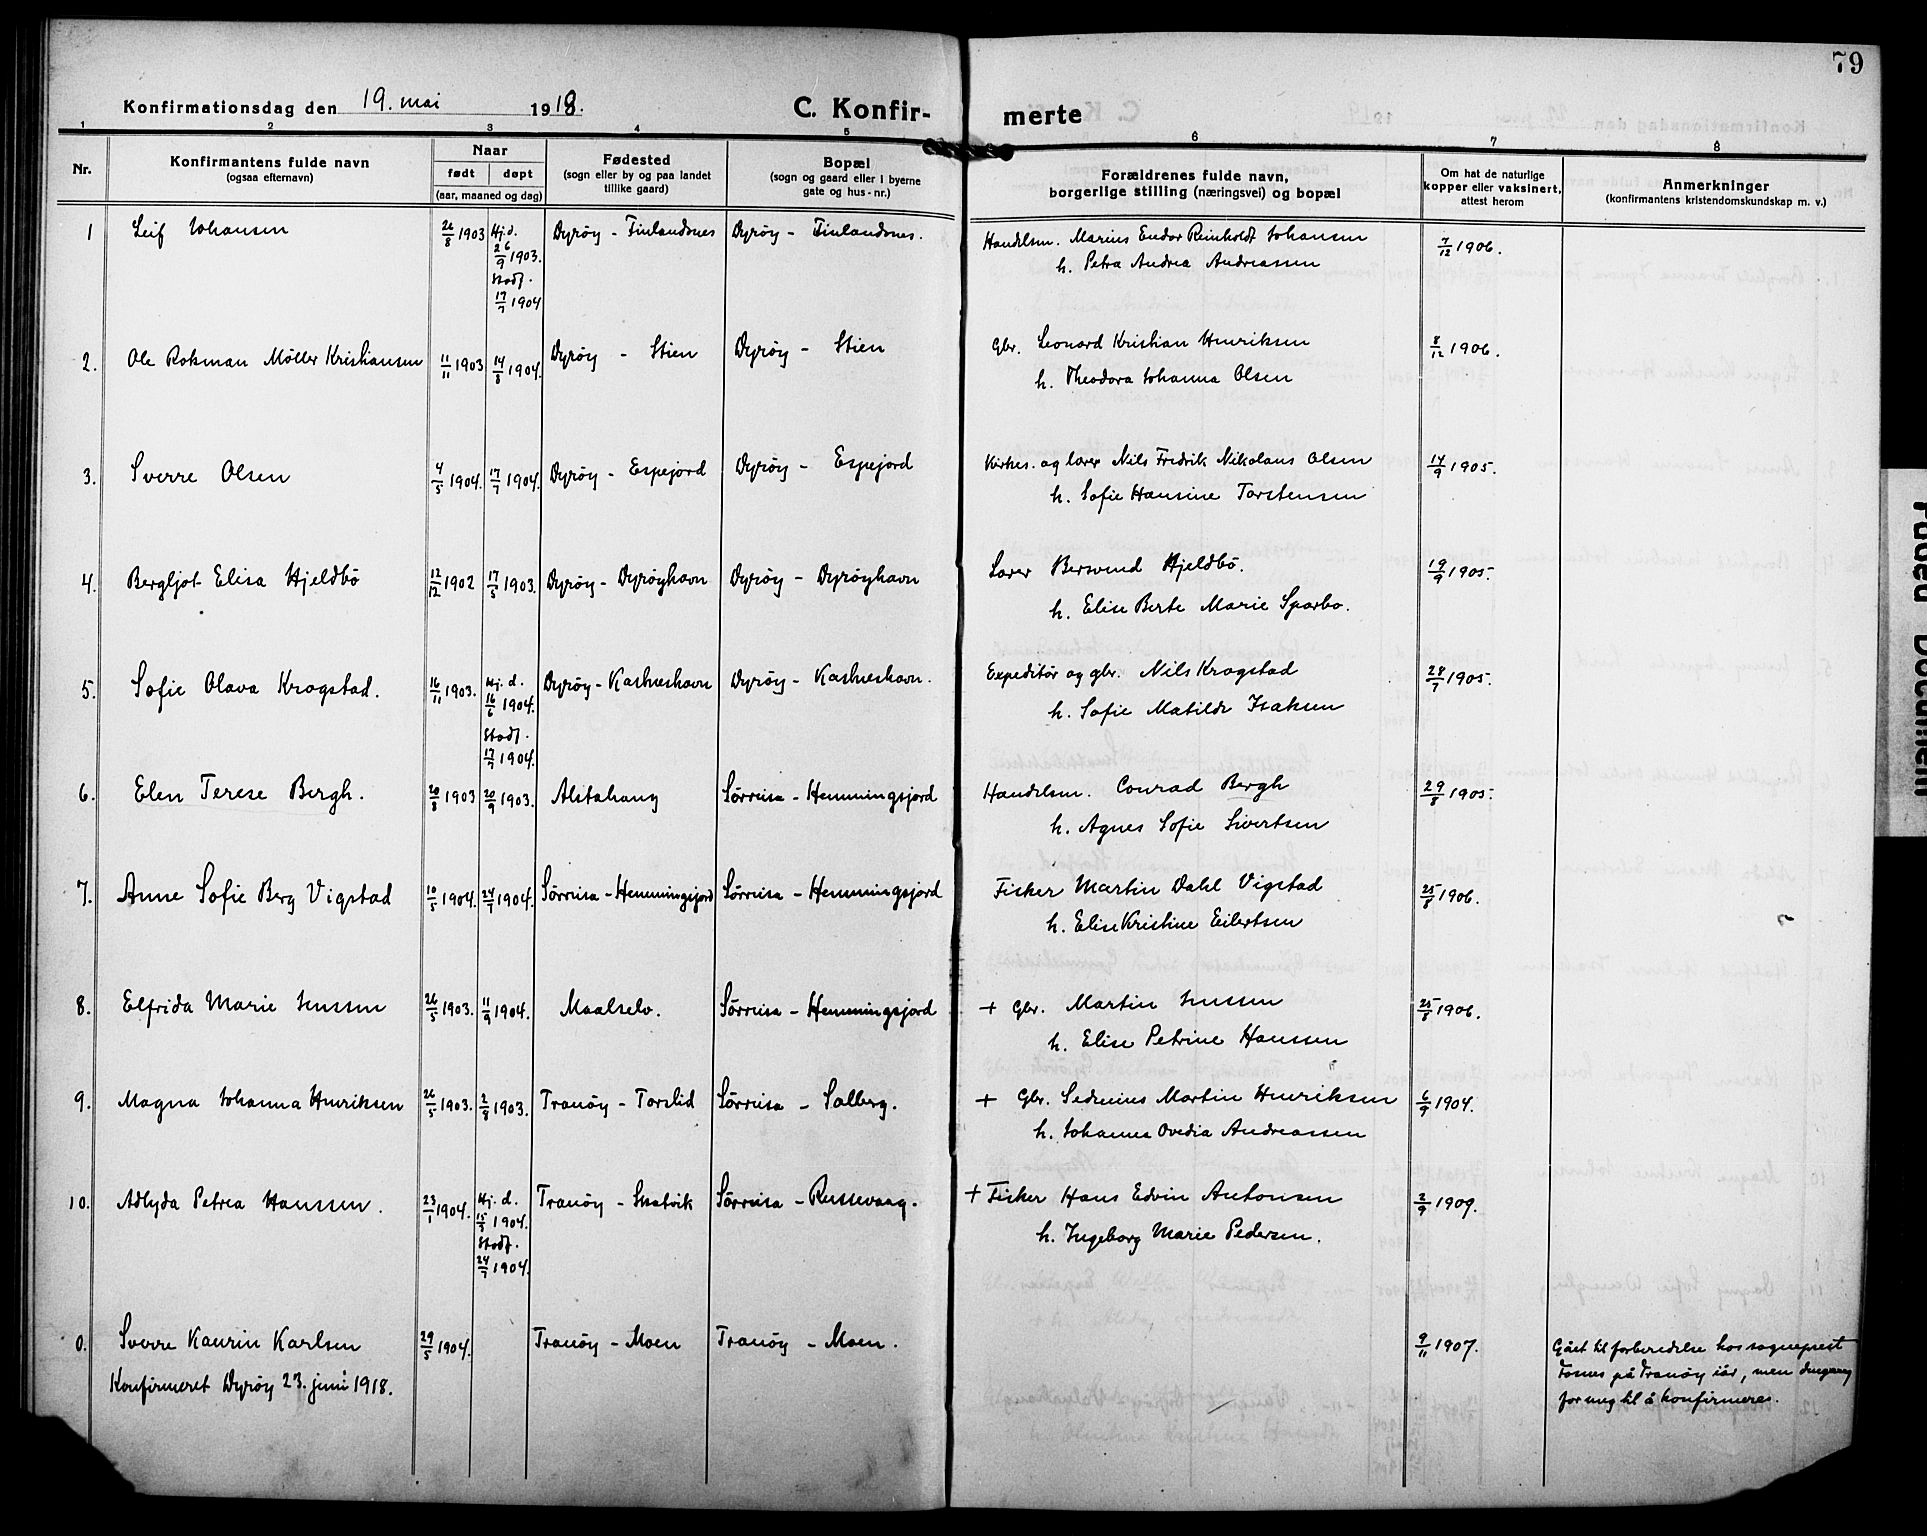 79
Konfirmationsdag den 19. mai 1918.
C. Konfir-
merte
1 2 3 4 5 6 7 8
Nr.
Konfirmantens fulde navn
(ogsaa efternavn)
Naar
født døpt
(aar, maaned og dag)
Fødested
(sogn eller by og paa landet
tillike gaard)
Bopæl
(sogn og gaard eller i byerne
gate og hus-nr.)
Forældrenes fulde navn,
borgerlige stilling (næringsvei) og bopæl
Om hat de naturlige
kopper eller vaksinert,
attest herom
Anmerkninger
(konfirmantens kristendomskundskap m. v.)
1 Leif Johansen 26/8 1903 Hj.d. Dyrøy - Finlandsnes Dyrøy - Finlandsnes. Handelsm. Marius Endor Reinholdt Johansen 7/12 1906.
26/9 1903. h. Petra Andrea Andreassen
Stadf.
17/7 1904
2. Ole Rokman Møller Kristiansen 11/11 1903 14/8 1904. Dyrøy - Stien Dyrøy - Stien Gbr. Leonard Kristian Henriksen 8/12 1906.
h. Theodora Johanna Olsen
3. Sverre Olsen 4/5 1904. 17/7 1904. Dyrøy - Espejord Dyrøy - Espejord Kirkes. og lærer Nils Fredrik Nikolaus Olsen 14/9 1905.
h. Sofie Hansine Torstensen
4. Bergljot Elisa Hjeldbø 12/12 1902 17/5 1903. Dyrøy - Dyrøyhavn Dyrøy - Dyrøyhavn Lærer Bersvend Hjeldbö. 19/9 1905.
h. Elise Berte Marie Sparbo.
5. Sofie Olava Krogstad. 16/11 1903. Hj. d. Dyrøy - Kastneshavn Dyrøy - Kastneshavn. Expeditør og gbr. Nils Krogstad 28/7 1905.
16/6 1904. h. Sofie Matilde Isaksen
Stadf.
17/7 1904.
6. Elen Terese Bergh. 20/8 1903 20/9 1903. Alstahaug Sørreisa - Hemmingsjord Handelsm. Conrad Bergh 29/8 1905.
h. Agnes Sofie Sivertsen
7. Anne Sofie Berg Vigstad 10/5 1904. 24/7 1904. Sørreisa - Hemmingsjord Sørreisa - Hemmingsjord Fisker Martin Dahl Vigstad 25/8 1906.
h. Elise Kristine Eilertsen
8. Elfrida Marie Jenssen 26/5 1903. 11/9 1904. Maalselv. Sørreisa - Hemmingsjord + Gbr. Martin Jenssen 25/8 1906.
h. Elise Petrine Hanssen
9. Magna Johanna Henriksen 26/5 1903. 2/8 1903. Tranöy - Torslid Sørreisa - Solberg. + Gbr. Sedenius Martin Henriksen 6/9 1904.
h. Johanna Ovedia Andreassen
10. Adlyda Petrea Hanssen. 23/1 1904. Hj. d. Tranöy - Skatvik Sørreisa - Russevaag. + Fisker Hans Edvin Antonsen 2/9 1909.
15/3 1904. h. Ingeborg Marie Pedersen.
Stadf.
24/7 1904.
0. Sverre Kaurin Karlsen 29/5 1904. Tranöy - Moen Tranöy - Moen. 9/11 1907. Gået til forberedelse hos sogneprest
Konfirmeret Dyröy 23. juni 1918. Fosnes på Tranöy iår, men
for meg til å konfirmeres.
Faded Document